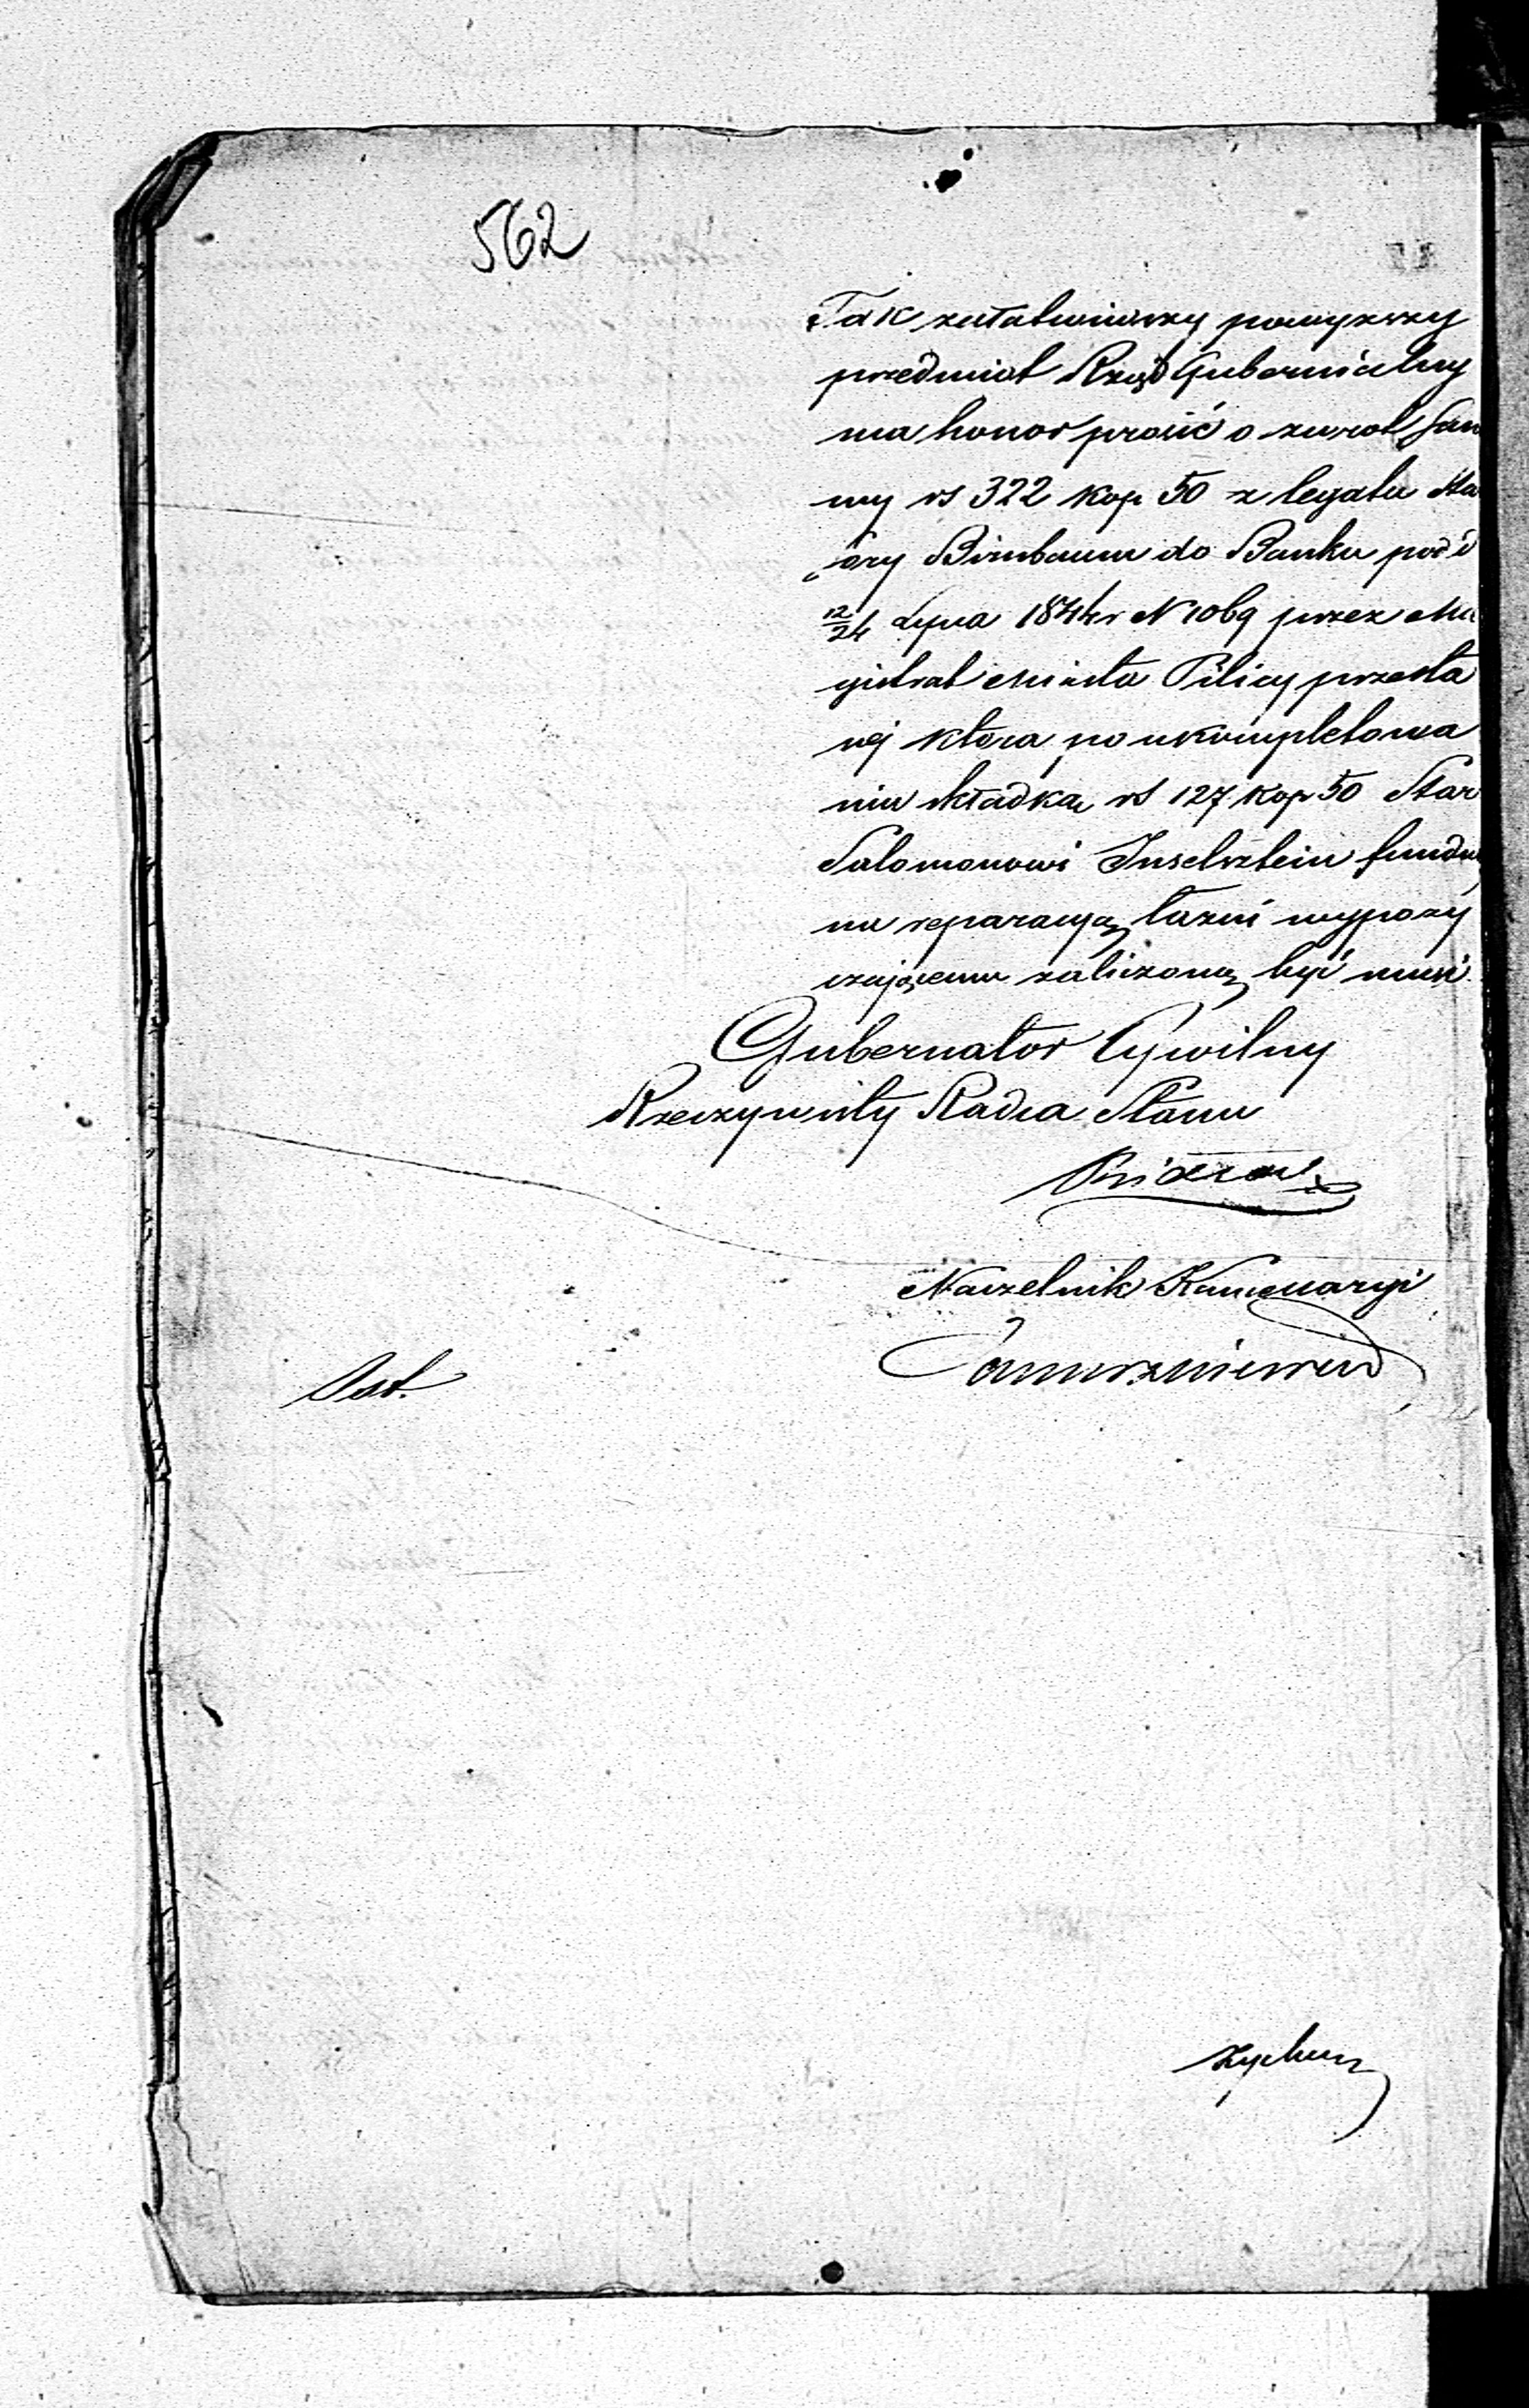 562
Tak załatwiwszy powyższy
przedmiot Rząd Gubernialny
ma honor prosić o zwrot Sum
my rs 322 kop 50 z legatu Sta
ory Birnbaum do Banku pod d
12/24 Lipca 1844 r N 1069 przez Ma
gistrat Miasta Pilicy przesła
nej która po ukompletowa
niu składką rs 127 kop 50 Star
Salomonowi Inselsztein fundu
na reparacyą łazni wypozy
czającemu zaliczoną być musi.
Gubernator Cywilny
Rzeczywisty Radca Stanu
Białoskó
Naczelnik Kancellaryi
Ast.